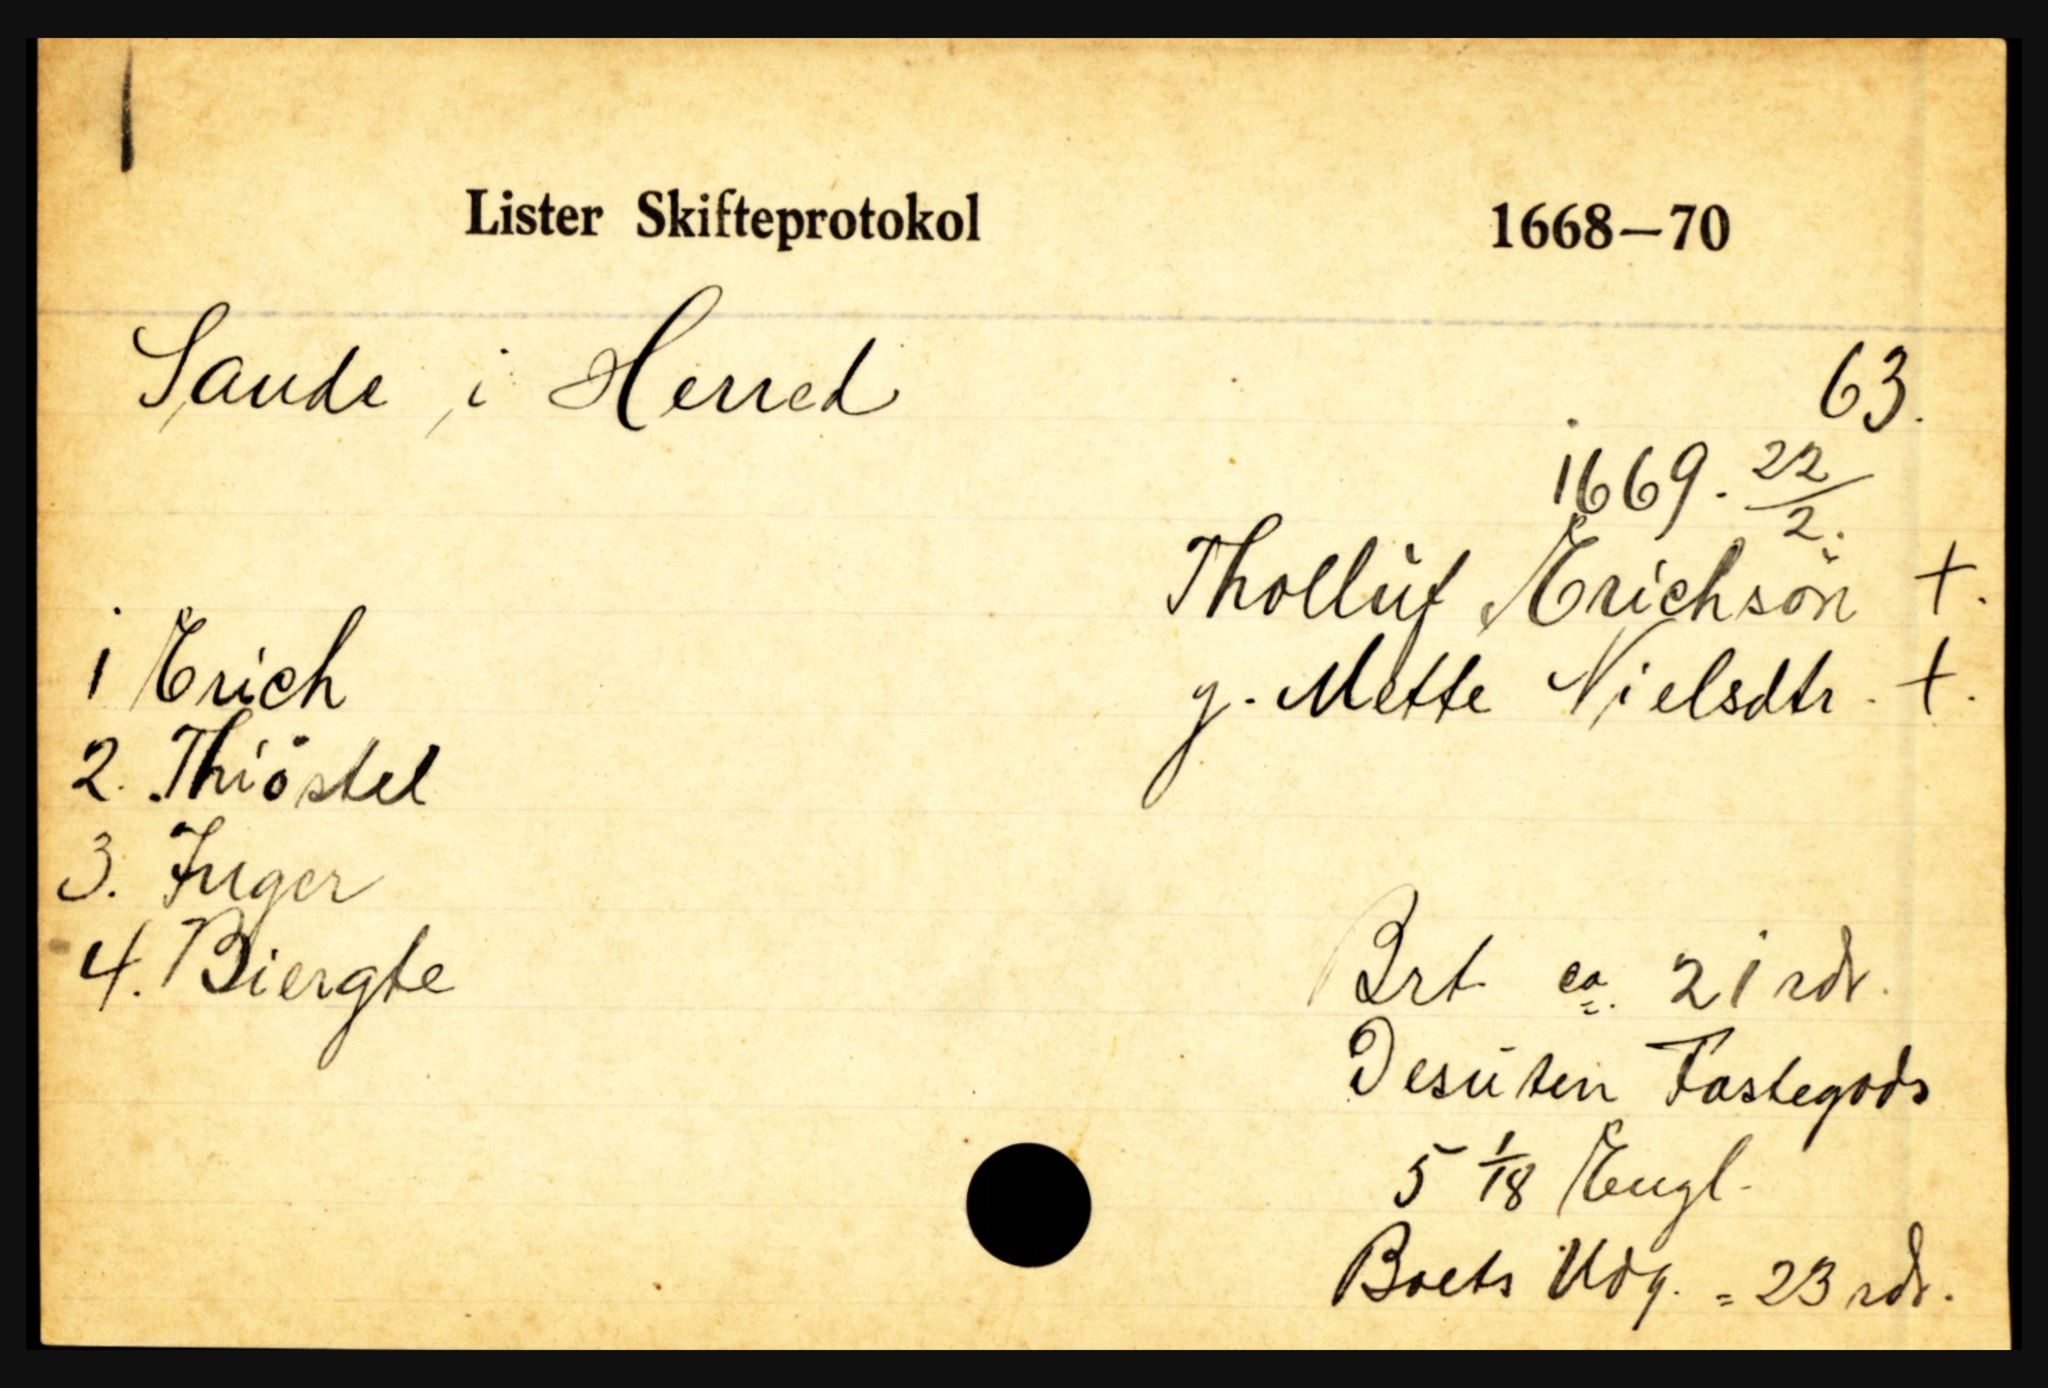 Lister Skifteprotokol 1668—70
Sande i Herred
63.
1669. 22/2.
Thollüf Erichsön +.
g. Mette Nielsdtr. +.
1 Erich
2. Thiöstel
3. Inger
4. Biergte
Brt ca. 21 rdr.
Desüten Fastegods
5 1/18 Engl.
Boets Udg. = 23 rdr.